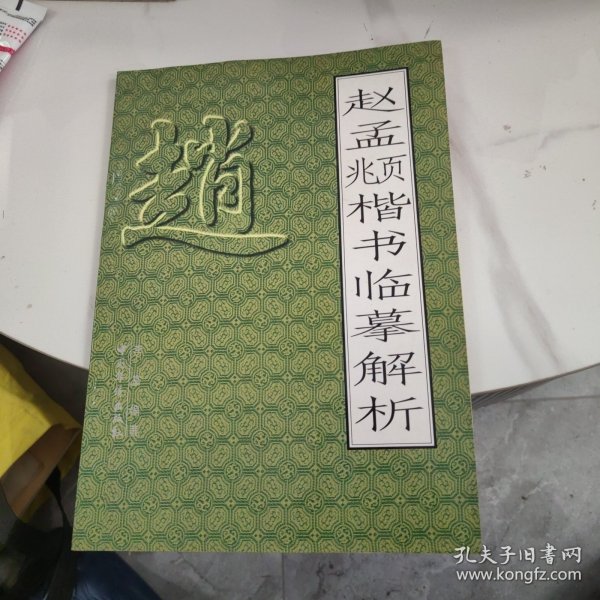 赵孟𫖯楷书临摹解析
趙
孔夫子旧书网
www.kongfz.com